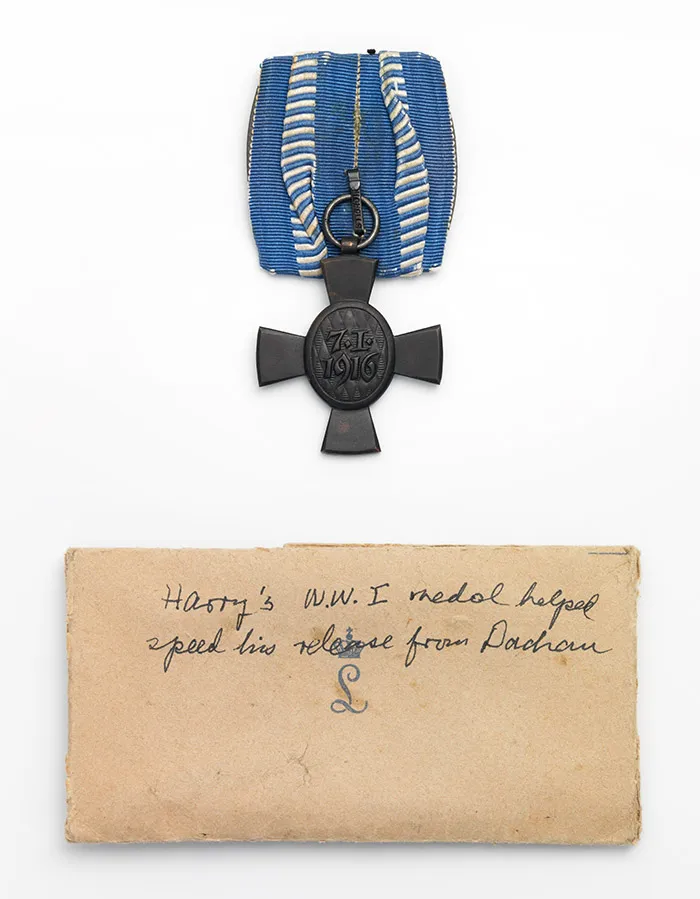 7·I·
1916
Harry's W.W. I medal helped
speed his release from Dachau
L